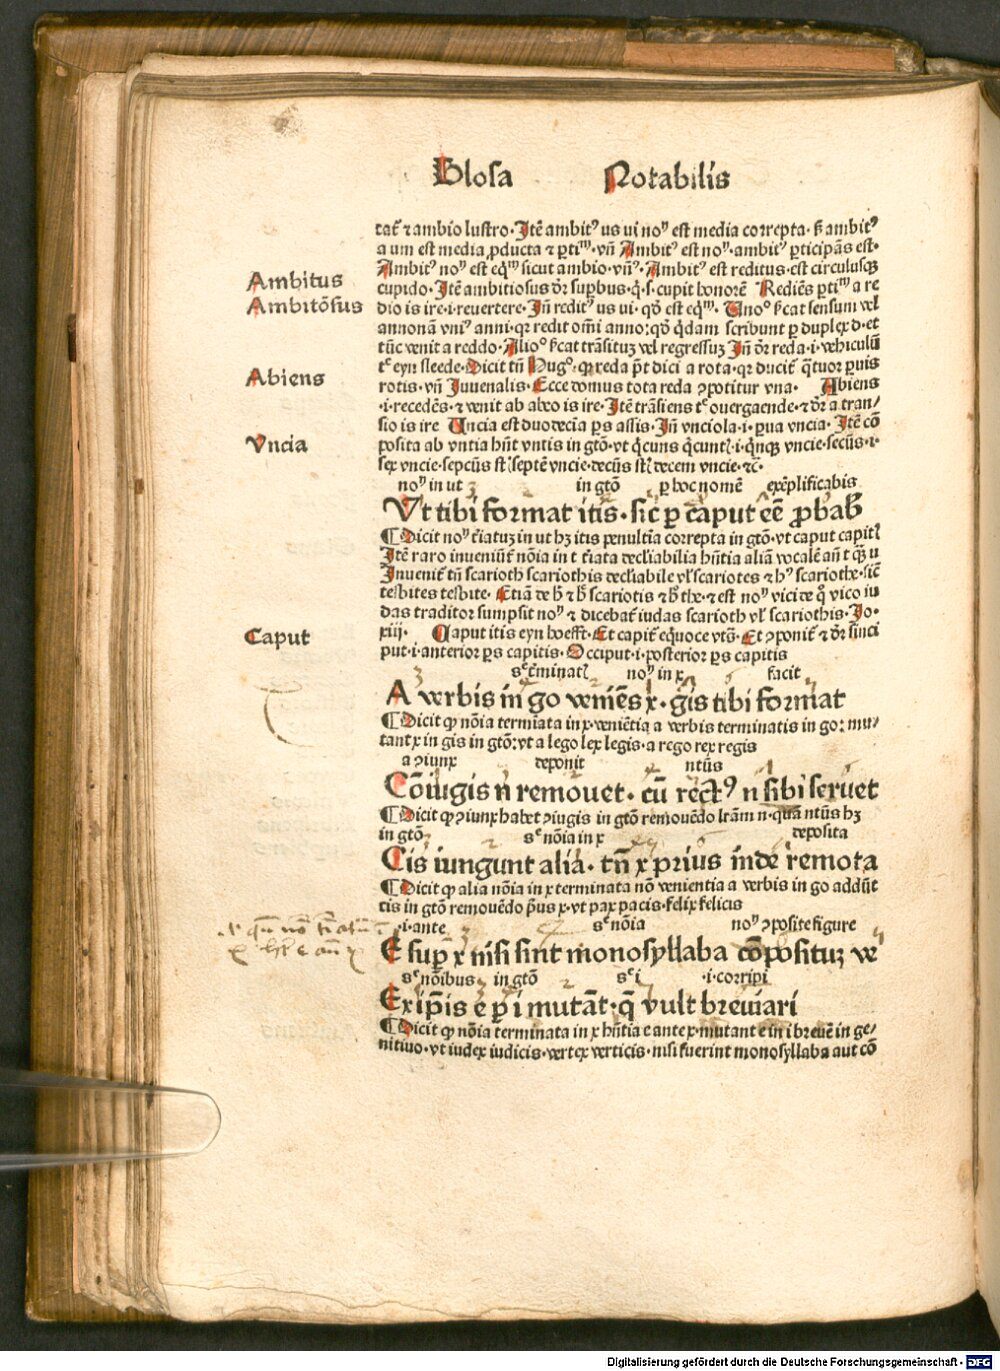 Glosa Notabilis
tat̄ ⁊ ambio lustro. Itē ambitꝰ us ui noꝰ est media correpta. ẜ ambitꝰ
a um est media ꝓducta ⁊ ꝑtiᵐ. vñ Ambitꝰ est noꝰ. ambitꝰ ꝑticipās est.
Ambitꝰ noꝰ est eqᵐ sicut ambio. vñꝰ. Ambitꝰ est reditus. est circulusqꝫ
Ambitus
cupido. Itē ambitiosus dr̄ suꝑbus. q̄. s. cupit honorē Rediēs ꝑtiᵐ a re
Ambitōsus
dio is ire. i. reuertere. Iñ reditꝰ us ui. qd̄ est eqᵐ. Unoº ẜcat sensum vel
annonā vniꝰ anni. qꝛ redit om̄i anno: qd̄ q̄dam scribunt ꝑ duplex d. et
tūc venit a reddo. Alioº ẜcat trāsituꝫ vel regressuꝫ Iñ dr̄ reda. i. vehiculū
tᵉ eyn sleede. Dicit tn̄ Hugº. ꝙ reda pt̄ dici a rota. qꝛ ducit̄ q̄tuor ꝑuis
Abiens
rotis. vñ Juuenalis. Ecce domus tota reda ꝯponitur vna. Abiens
.i. recedēs. ⁊ venit ab abeo is ire. Itē trāsiens tᵉ ouergaende. ⁊ dr̄ a tran/
sio is ire Uncia est duodecia ꝑs assis. Iñ vnciola. i. ꝑua vncia. Itē cō
Vncia
posita ab vntia hn̄t vntis in gtō. vt q̄cuns q̄cuntꝭ. i. q̄nqꝫ vncie. secūs. i.
sex vncie. sepcūs st̄ septē vncie. decūs st̄ decem vncie. ⁊c.
noꝰ in ut in gtō ꝑ hoc nomē exēplificabis
Vt tibi format itis. sic ꝑ caput eē ꝓbab̄
¶ Dicit noꝰ t̄iatuꝫ in ut hꝫ itis penultīa correpta in gtō. vt caput capitꝭ
Itē raro inueniūt̄ nōia in t t̄iata decl̄iabilia hn̄tia aliā vocalē añ t qꝫ u
Inuenit̄ tn̄ scarioth scariothis decl̄iabile vl̓ scariotes ⁊ hꝰ scariothe. sic̄
tesbites tesbite. Etiā de h̄ ⁊ h̄ scariotis ⁊ h̄ the. ⁊ est noꝰ vici de q̊ vico iu
das traditor sumpsit noꝰ ⁊ dicebat̄ iudas scarioth vl̓ scariothis. Jo.
xiij. Caput itis eyn hoefft. Et capit̄ equoce vts̄. Et ꝯponit̄ ⁊ dr̄ sinci
Caput
put. i. anterior ꝑs capitis. Occiput. i. posterior ꝑs capitis
sᵉ t̄minatꝭ noꝰ in x facit
A verbis in go veniēs x. gis tibi format
¶ Dicit ꝙ nōia termīata in x. veniētia a verbis terminatis in go: mu/
tant x in gis in gtō: vt a lego lex legis. a rego rex regis
a ꝯiunx deponit ntūs
Cōiugis n̄ remouet. cū rectꝰ n sibi seruet
¶ Dicit ꝙ ꝯiunx habet ꝯiugis in gtō remouēdo lr̄am n. quā ntūs hꝫ
in gtō sᵉ nōia in x deposita
Cis iungunt alia. tn̄ x prius inde remota
¶ Dicit ꝙ alia nōia in x terminata nō venientia a verbis in go addūt
cis in gtō remouēdo p̄us x. vt pax pacis. felix felicis
.i. ante sᵉ nōia noꝰ ꝯposite figure
E suꝑ x nisi sint monosyllaba cōpositum ve
sᵉ nōibus in gtō sᵉ i .i. corripi
Ex ip̄is e ꝑ i mutāt. q̄ vult breuiari
¶ Dicit ꝙ nōia terminata in x hn̄tia e ante x. mutant e in i breuē in ge/
nitiuo. vt iudex iudicis. vertex verticis. nisi fuerint monosyllaba aut cō
Digitalisierung gefördert durch die Deutsche Forschungsgemeinschaft - DFG